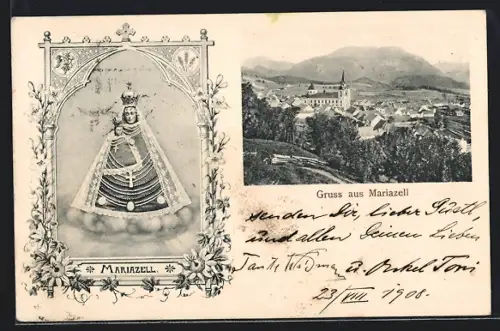 MARIAZELL.
Gruss aus Mariazell
senden Dir, lieber Gustl,
und allen Deinen Lieben
Tante u. Onkel Toni
23/VIII 1908.